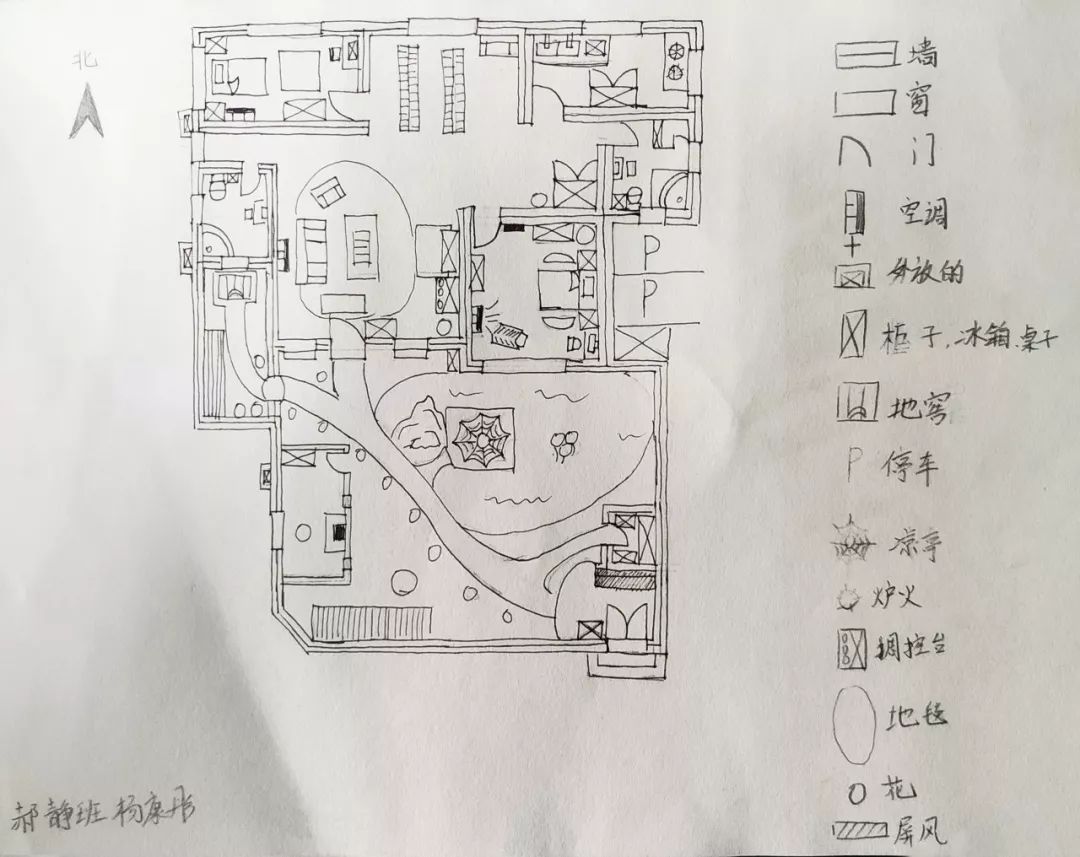 北
墙
窗
门
空调
+
外放的
柜子、冰箱、桌子
地窖
P 停车
凉亭
炉火
调控台
地毯
花
屏风
P
P
郝静班 杨康彤